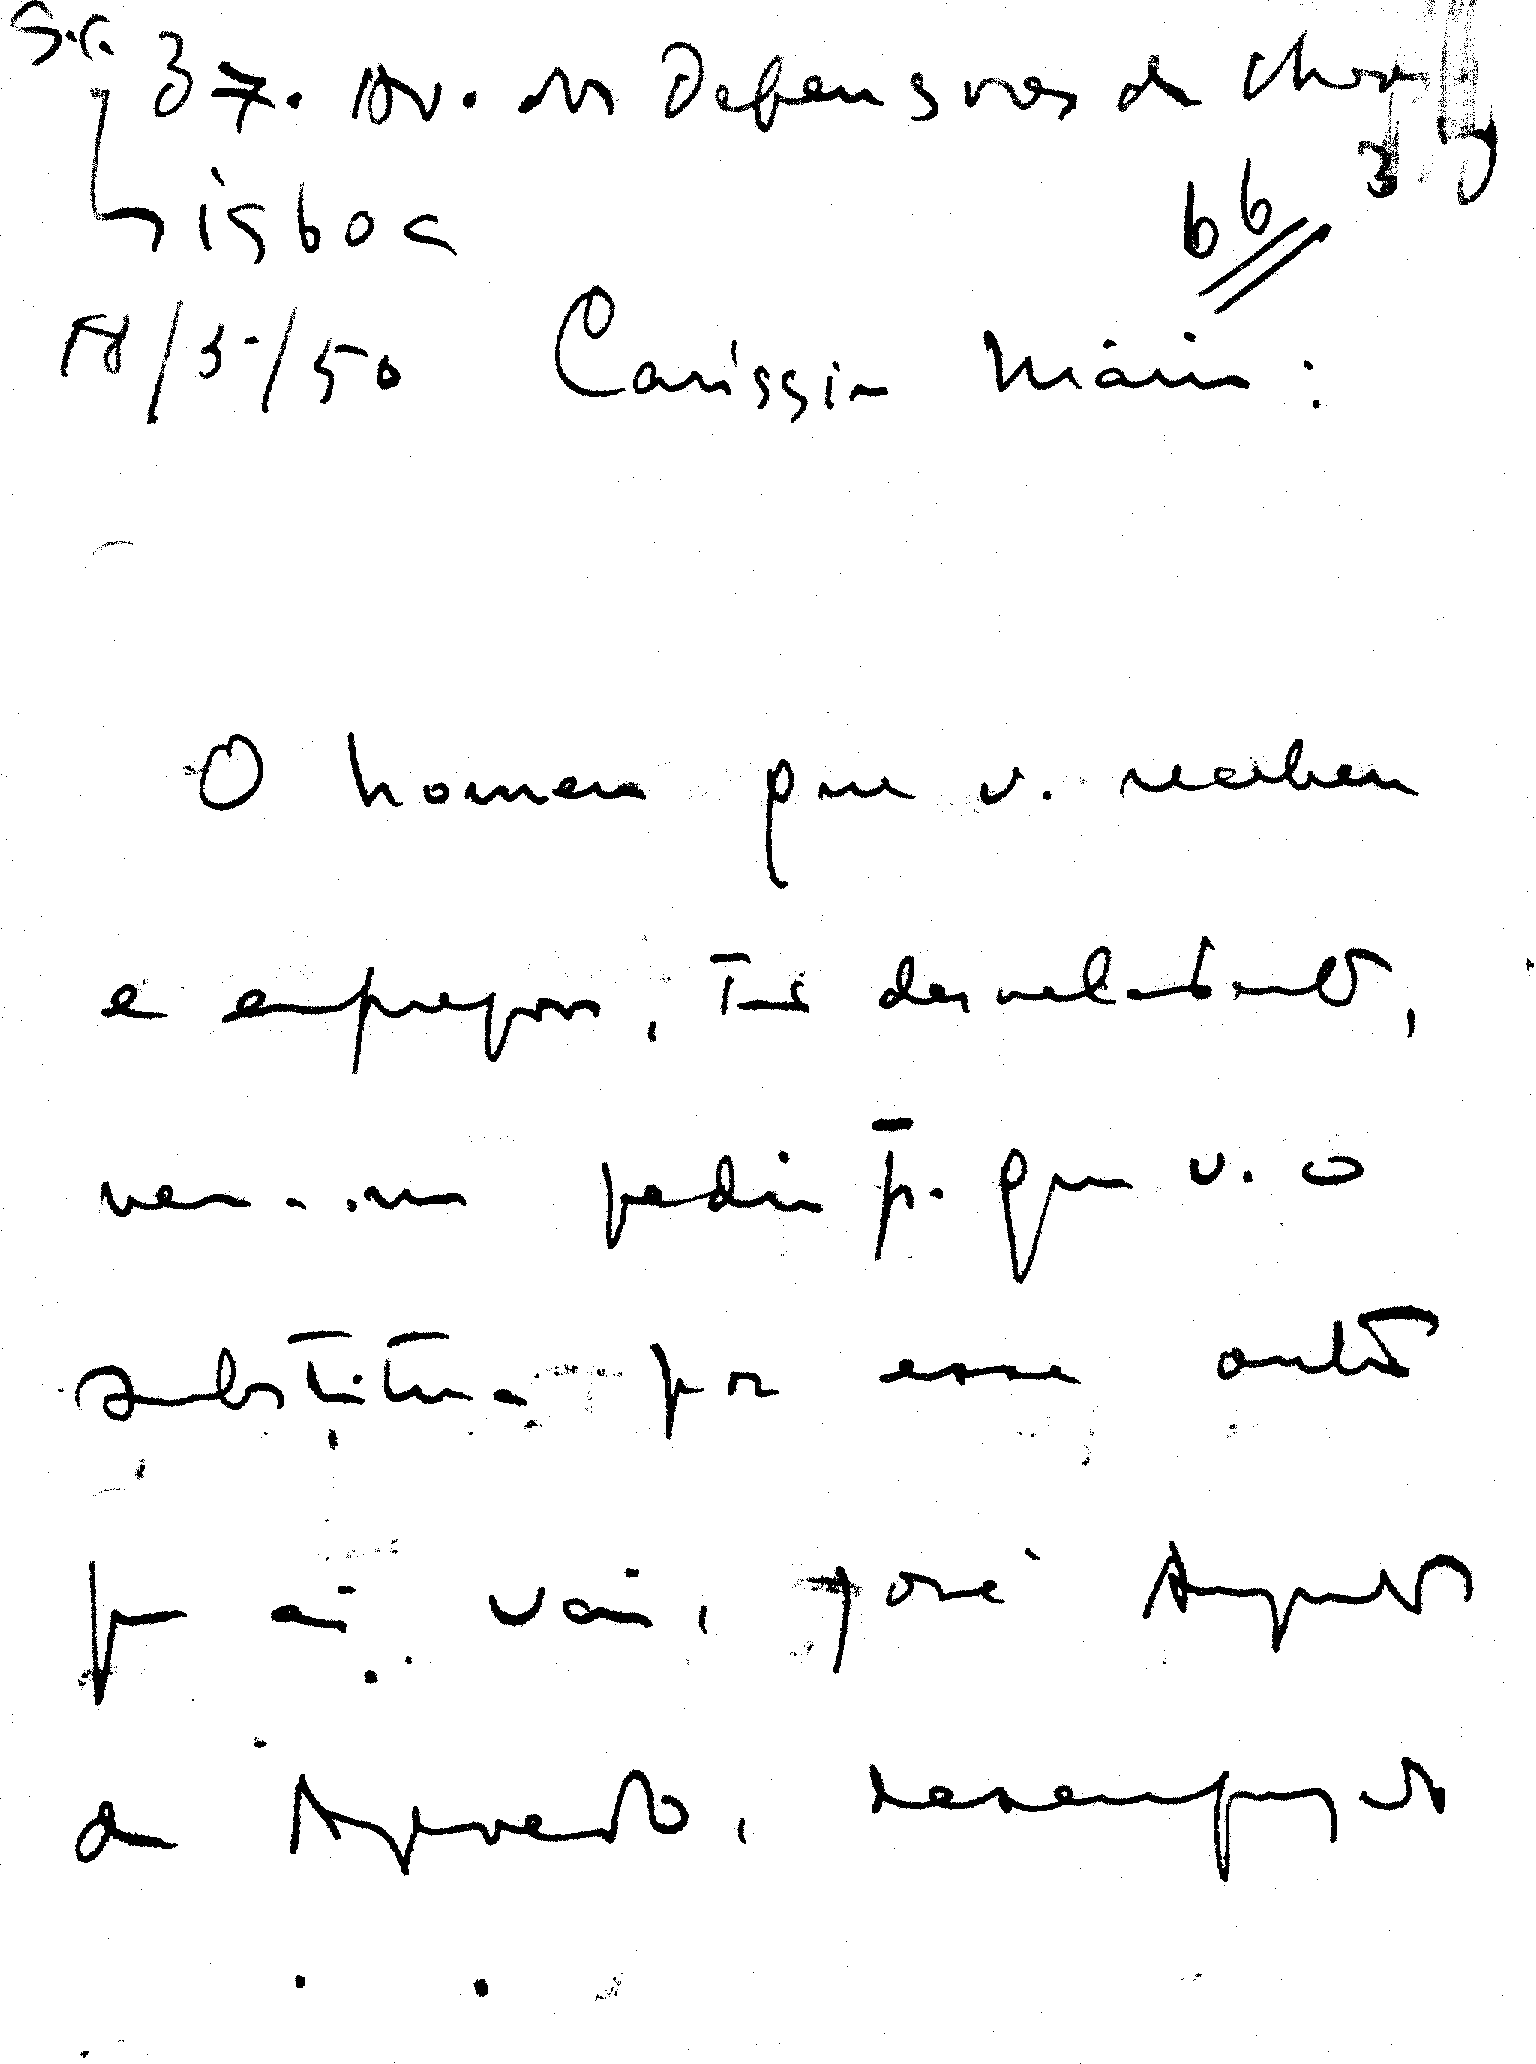 S.C. 37. Av. dos Defensores de Chaves
Lisboa 66 3
18/5/50 Caríssimo Mário:
O homem que v. recebeu
e empregou, tão desveladamente,
vem-me pedir p. que v. o
substitua por esse outro
que aí vai, José Augusto
de Azevedo, desempregado